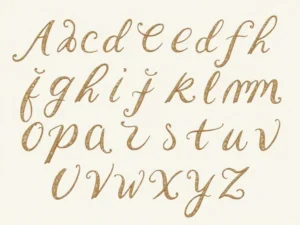 A a c d e e d f h
f g h i f k l m m
O p a r s t u v
U v w x y z